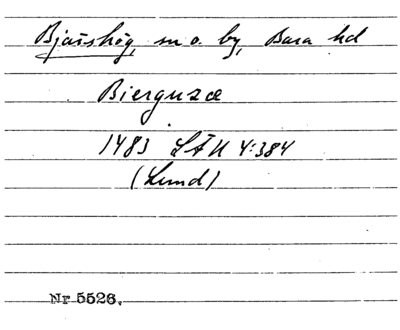 Bjärshög, sn o. by, Bara hd
Bierguzæ
1483 LÄU 4:384
(Lund)
Nr 5526.